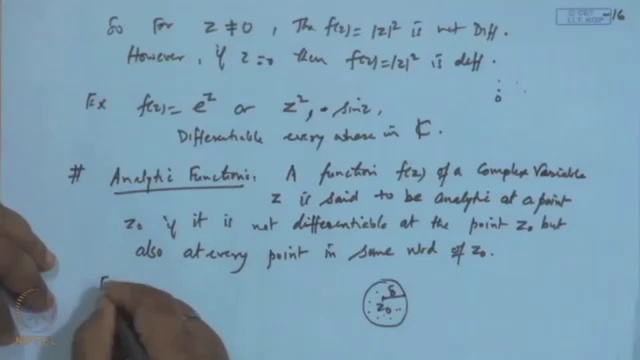 16
So For z ≠ 0, The f(z) = |z|² is not Diff.
However, if z = 0 then f(z) = |z|² is diff.
0
Ex f(z) = e^z or z², sin z,
Differentiable every where in ℂ.
# Analytic Function: A function f(z) of a Complex Variable
z is said to be analytic at a point
z₀ if it is not differentiable at the point z₀ but
also at every point in some nbd of z₀.
δ
z₀
NPTEL